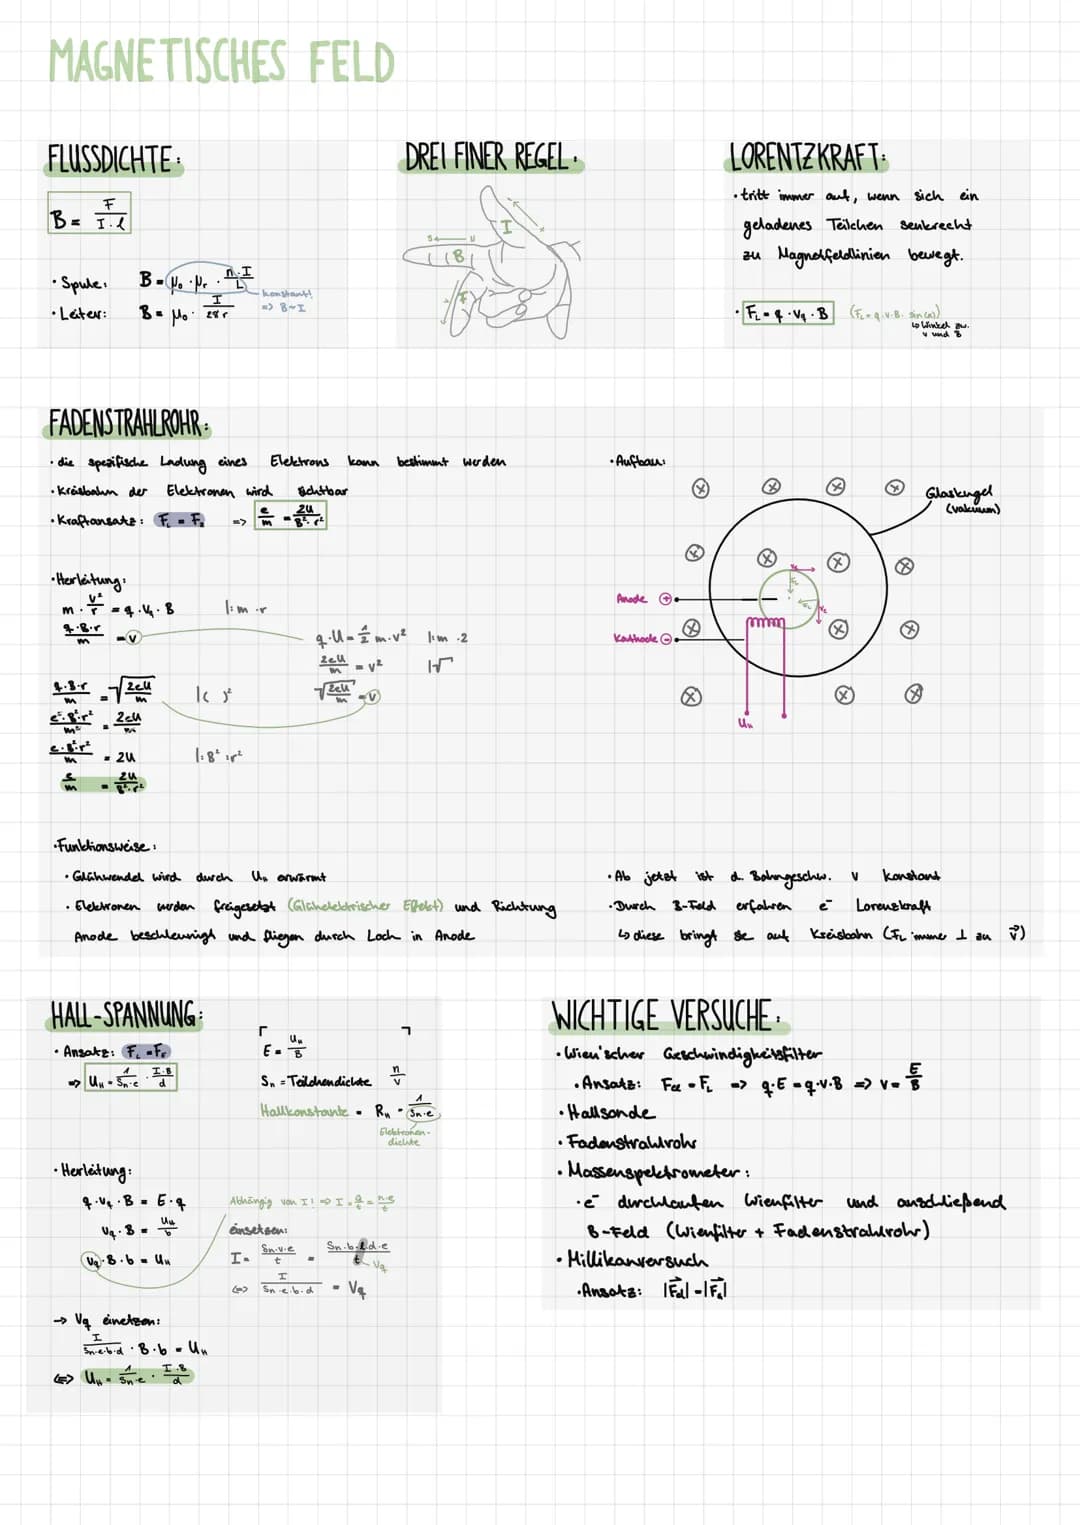 MAGNETISCHES FELD
FLUSSDICHTE:
B = F / I·l
· Spule: B = μ₀ · μᵣ · n·I / L
konstant!
=> B~I
· Leiter: B = μ₀ · I / 2π r
DREI FINER REGEL:
I
S N
B
F
LORENTZKRAFT:
· tritt immer auf, wenn sich ein
geladenes Teilchen senkrecht
zu Magnetfeldlinien bewegt.
· F_L = q · v_q · B (F_L = q·v·B· sin(α))
↳ Winkel zw.
v und B
FADENSTRAHLROHR:
· die spezifische Ladung eines Elektrons kann bestimmt werden
· Kreisbahn der Elektronen wird sichtbar
· Kraftansatz: F_L = F_z => e/m = 2U / B²·r²
· Herleitung:
m · v²/r = q · v_q · B |:m ·r
q·B·r / m = v
q·U = 1/2 m·v² |:m ·2
2eU / m = v² |√
√(2eU / m) = v
q·B·r / m = √(2eU / m) |( )²
e²·B²·r² / m² = 2eU / m
e·B²·r² / m = 2U |:B² :r²
e/m = 2U / B²·r²
· Aufbau:
Glaskugel
(Vakuum)
Anode +
Kathode −
U_H
· Funktionsweise:
· Glühwendel wird durch U_H erwärmt
· Elektronen werden freigesetzt (Glühelektrischer Effekt) und Richtung
Anode beschleunigt und fliegen durch Loch in Anode
· Ab jetzt ist d. Bahngeschw. v konstant
· Durch B-Feld erfahren e⁻ Lorenzkraft
↳ diese bringt se auf Kreisbahn (F_L immer ⊥ zu v⃗)
HALL-SPANNUNG:
· Ansatz: F_L = F_e
=> U_H = 1 / Sn·e · I·B / d
E = U_H / B
S_n = Teilchendichte n / V
Hallkonstante = R_H = 1 / Sn·e
Elektronen-
dichte
· Herleitung:
q·v_q·B = E·q
v_q·B = U_H / b
v_q·B·b = U_H
Abhängig von I! => I = Q/t = n·e / t
einsetzen:
I = Sn·V·e / t = Sn·b·l·d·e / t
v_q
<=> I / Sn·e·b·d = v_q
→ v_q einetzen:
I / Sn·e·b·d · B·b = U_H
<=> U_H = 1 / Sn·e · I·B / d
WICHTIGE VERSUCHE:
· Wien'scher Geschwindigkeitsfilter
· Ansatz: F_el = F_L => q·E = q·v·B => v = E / B
· Hallsonde
· Fadenstrahlrohr
· Massenspektrometer:
· e⁻ durchlaufen Wienfilter und anschließend
B-Feld (Wienfilter + Fadenstrahlrohr)
· Millikanversuch
· Ansatz: |F⃗_el| = |F⃗_G|